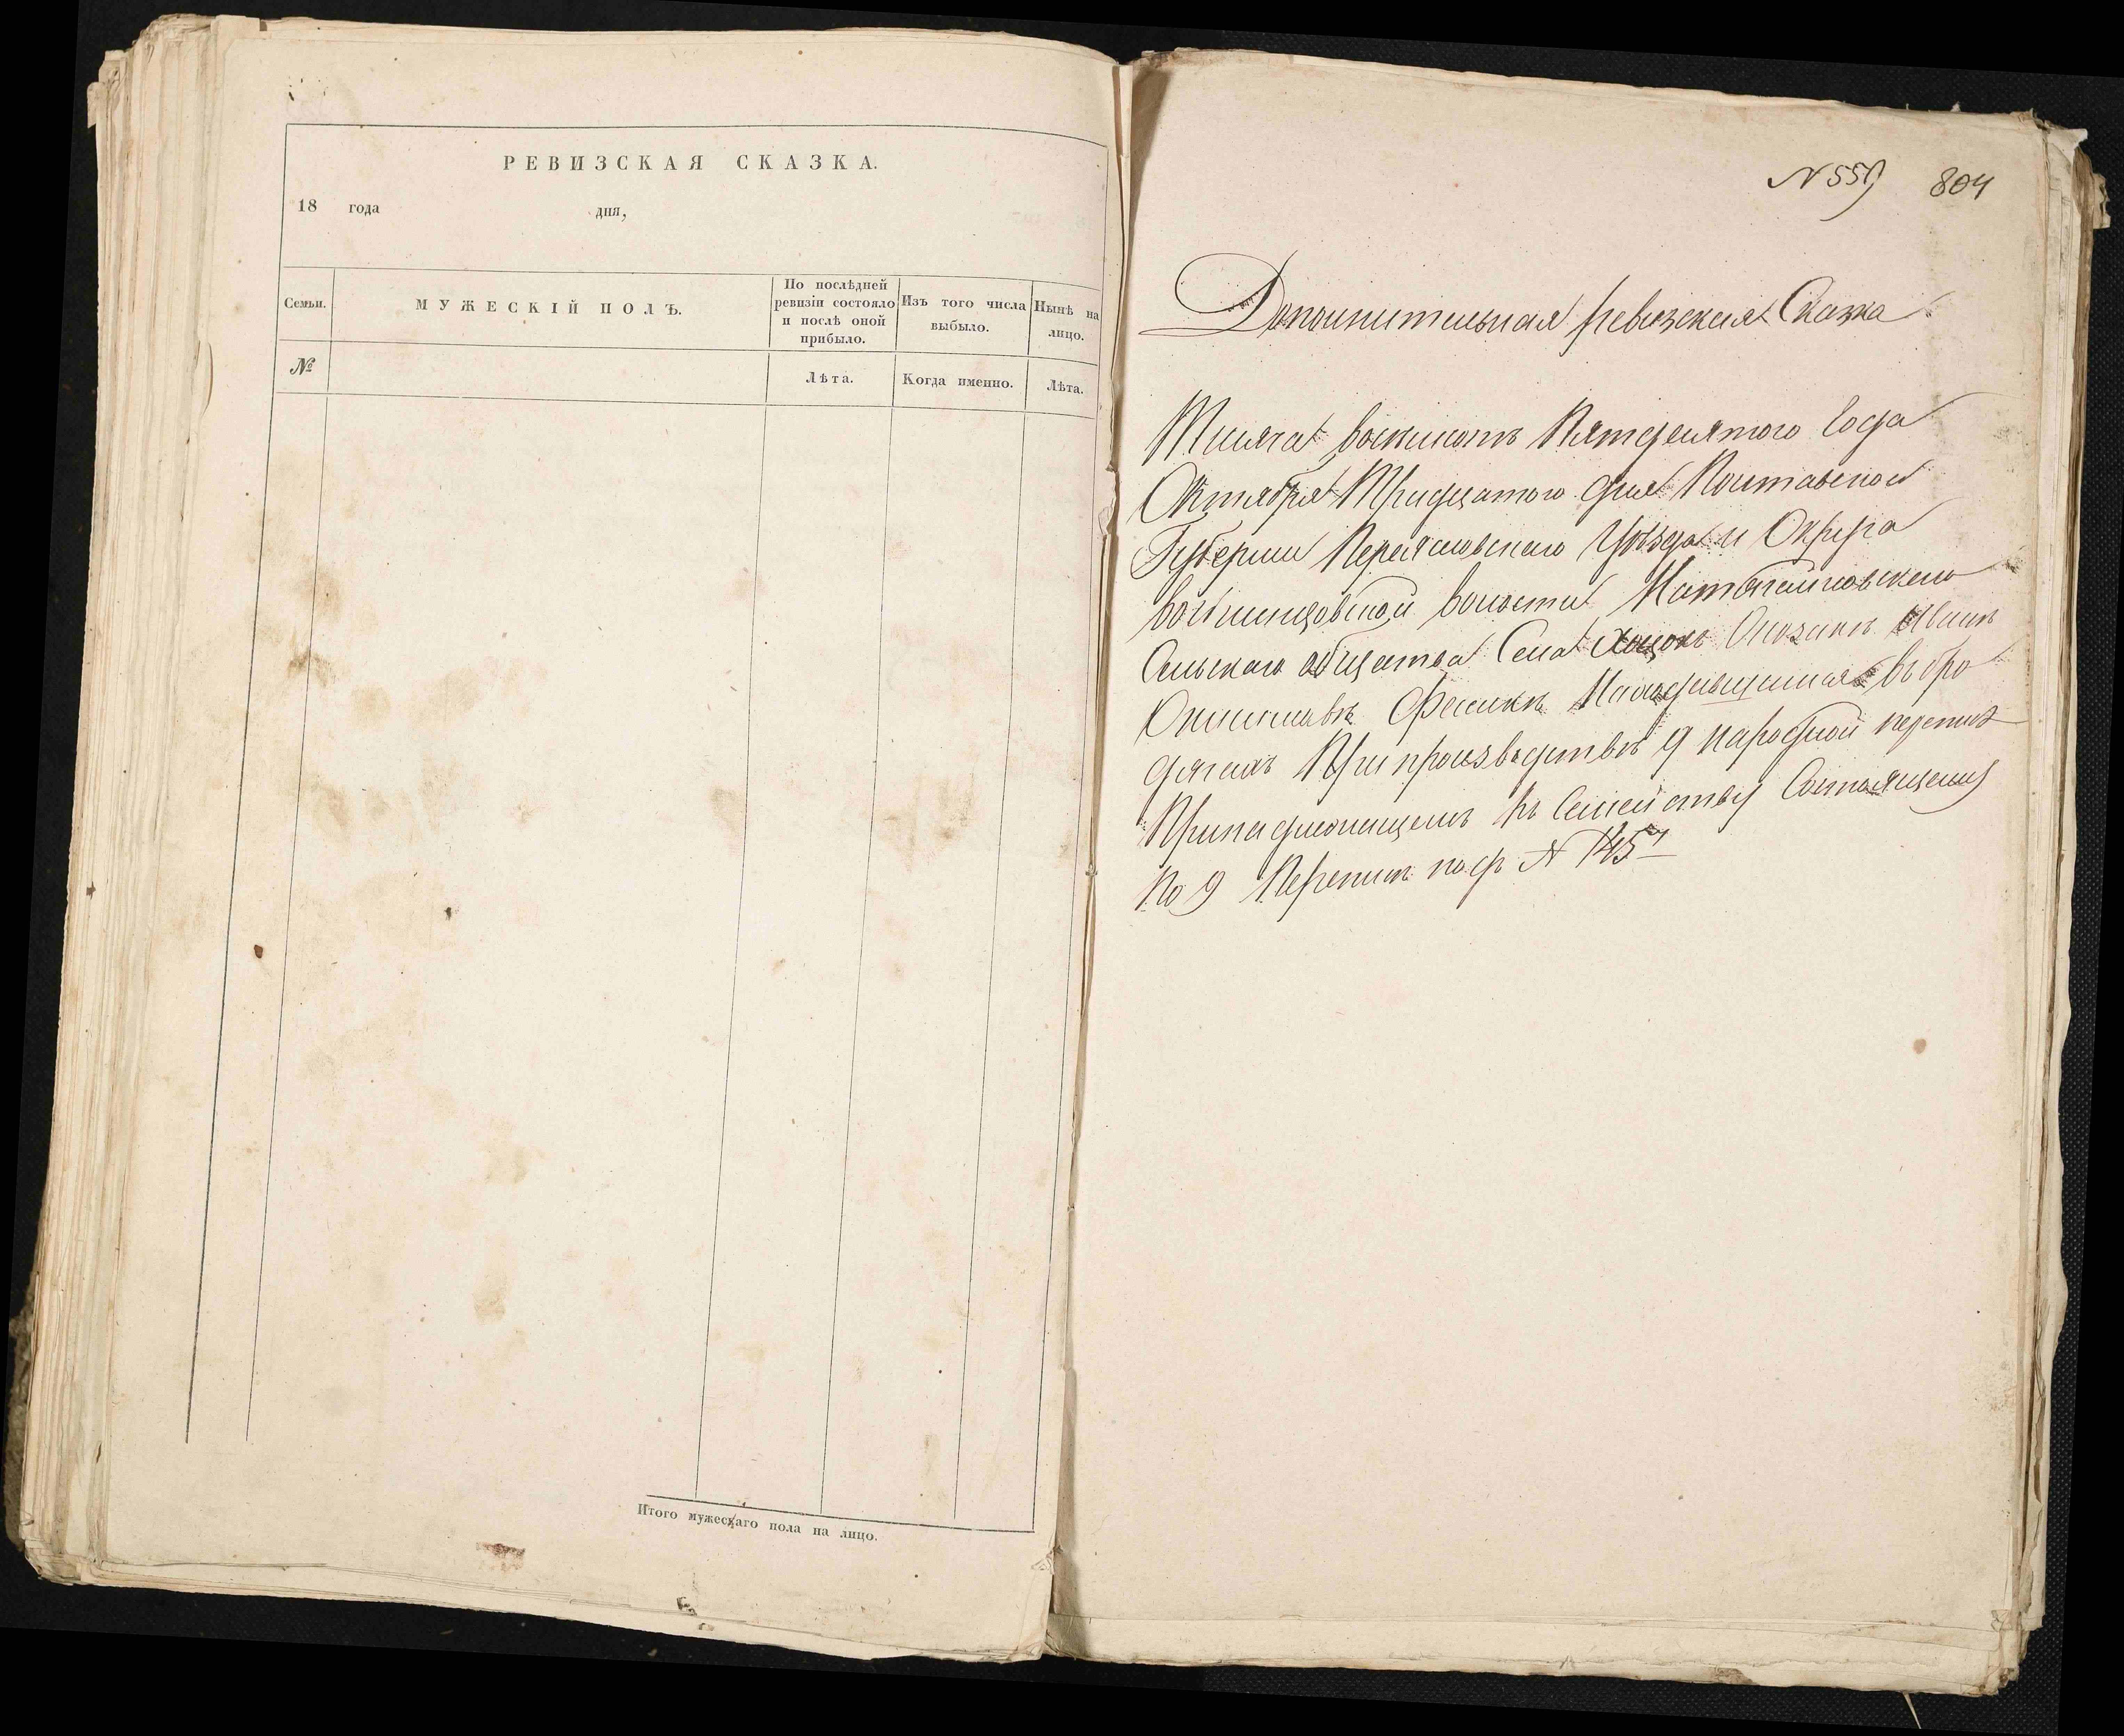 РЕВИЗСКАЯ СКАЗКА.
18 года дня,
Семьи.
МУЖЕСКІЙ ПОЛЪ.
По послѣдней
ревизіи состояло
и послѣ оной
прибыло.
Изъ того числа
выбыло.
Нынѣ на
лицо.
№
Лѣта.
Когда именно.
Лѣта.
Итого мужескаго пола на лицо.
N 559 804
Дополнительная ревизская Сказка
Тысяча восемсотъ Пятдесятого Года
Октября Тридцатого дня Полтавской
Губерніи Переяславского Уѣзда и Округа
волости
Сельскаго общества Села Хоцокъ
въ бро
дягахъ При производствѣ 9 народной переписѣ
Принадлежащемъ къ Семейству Состоящему
По 9 Переписи подъ N 145